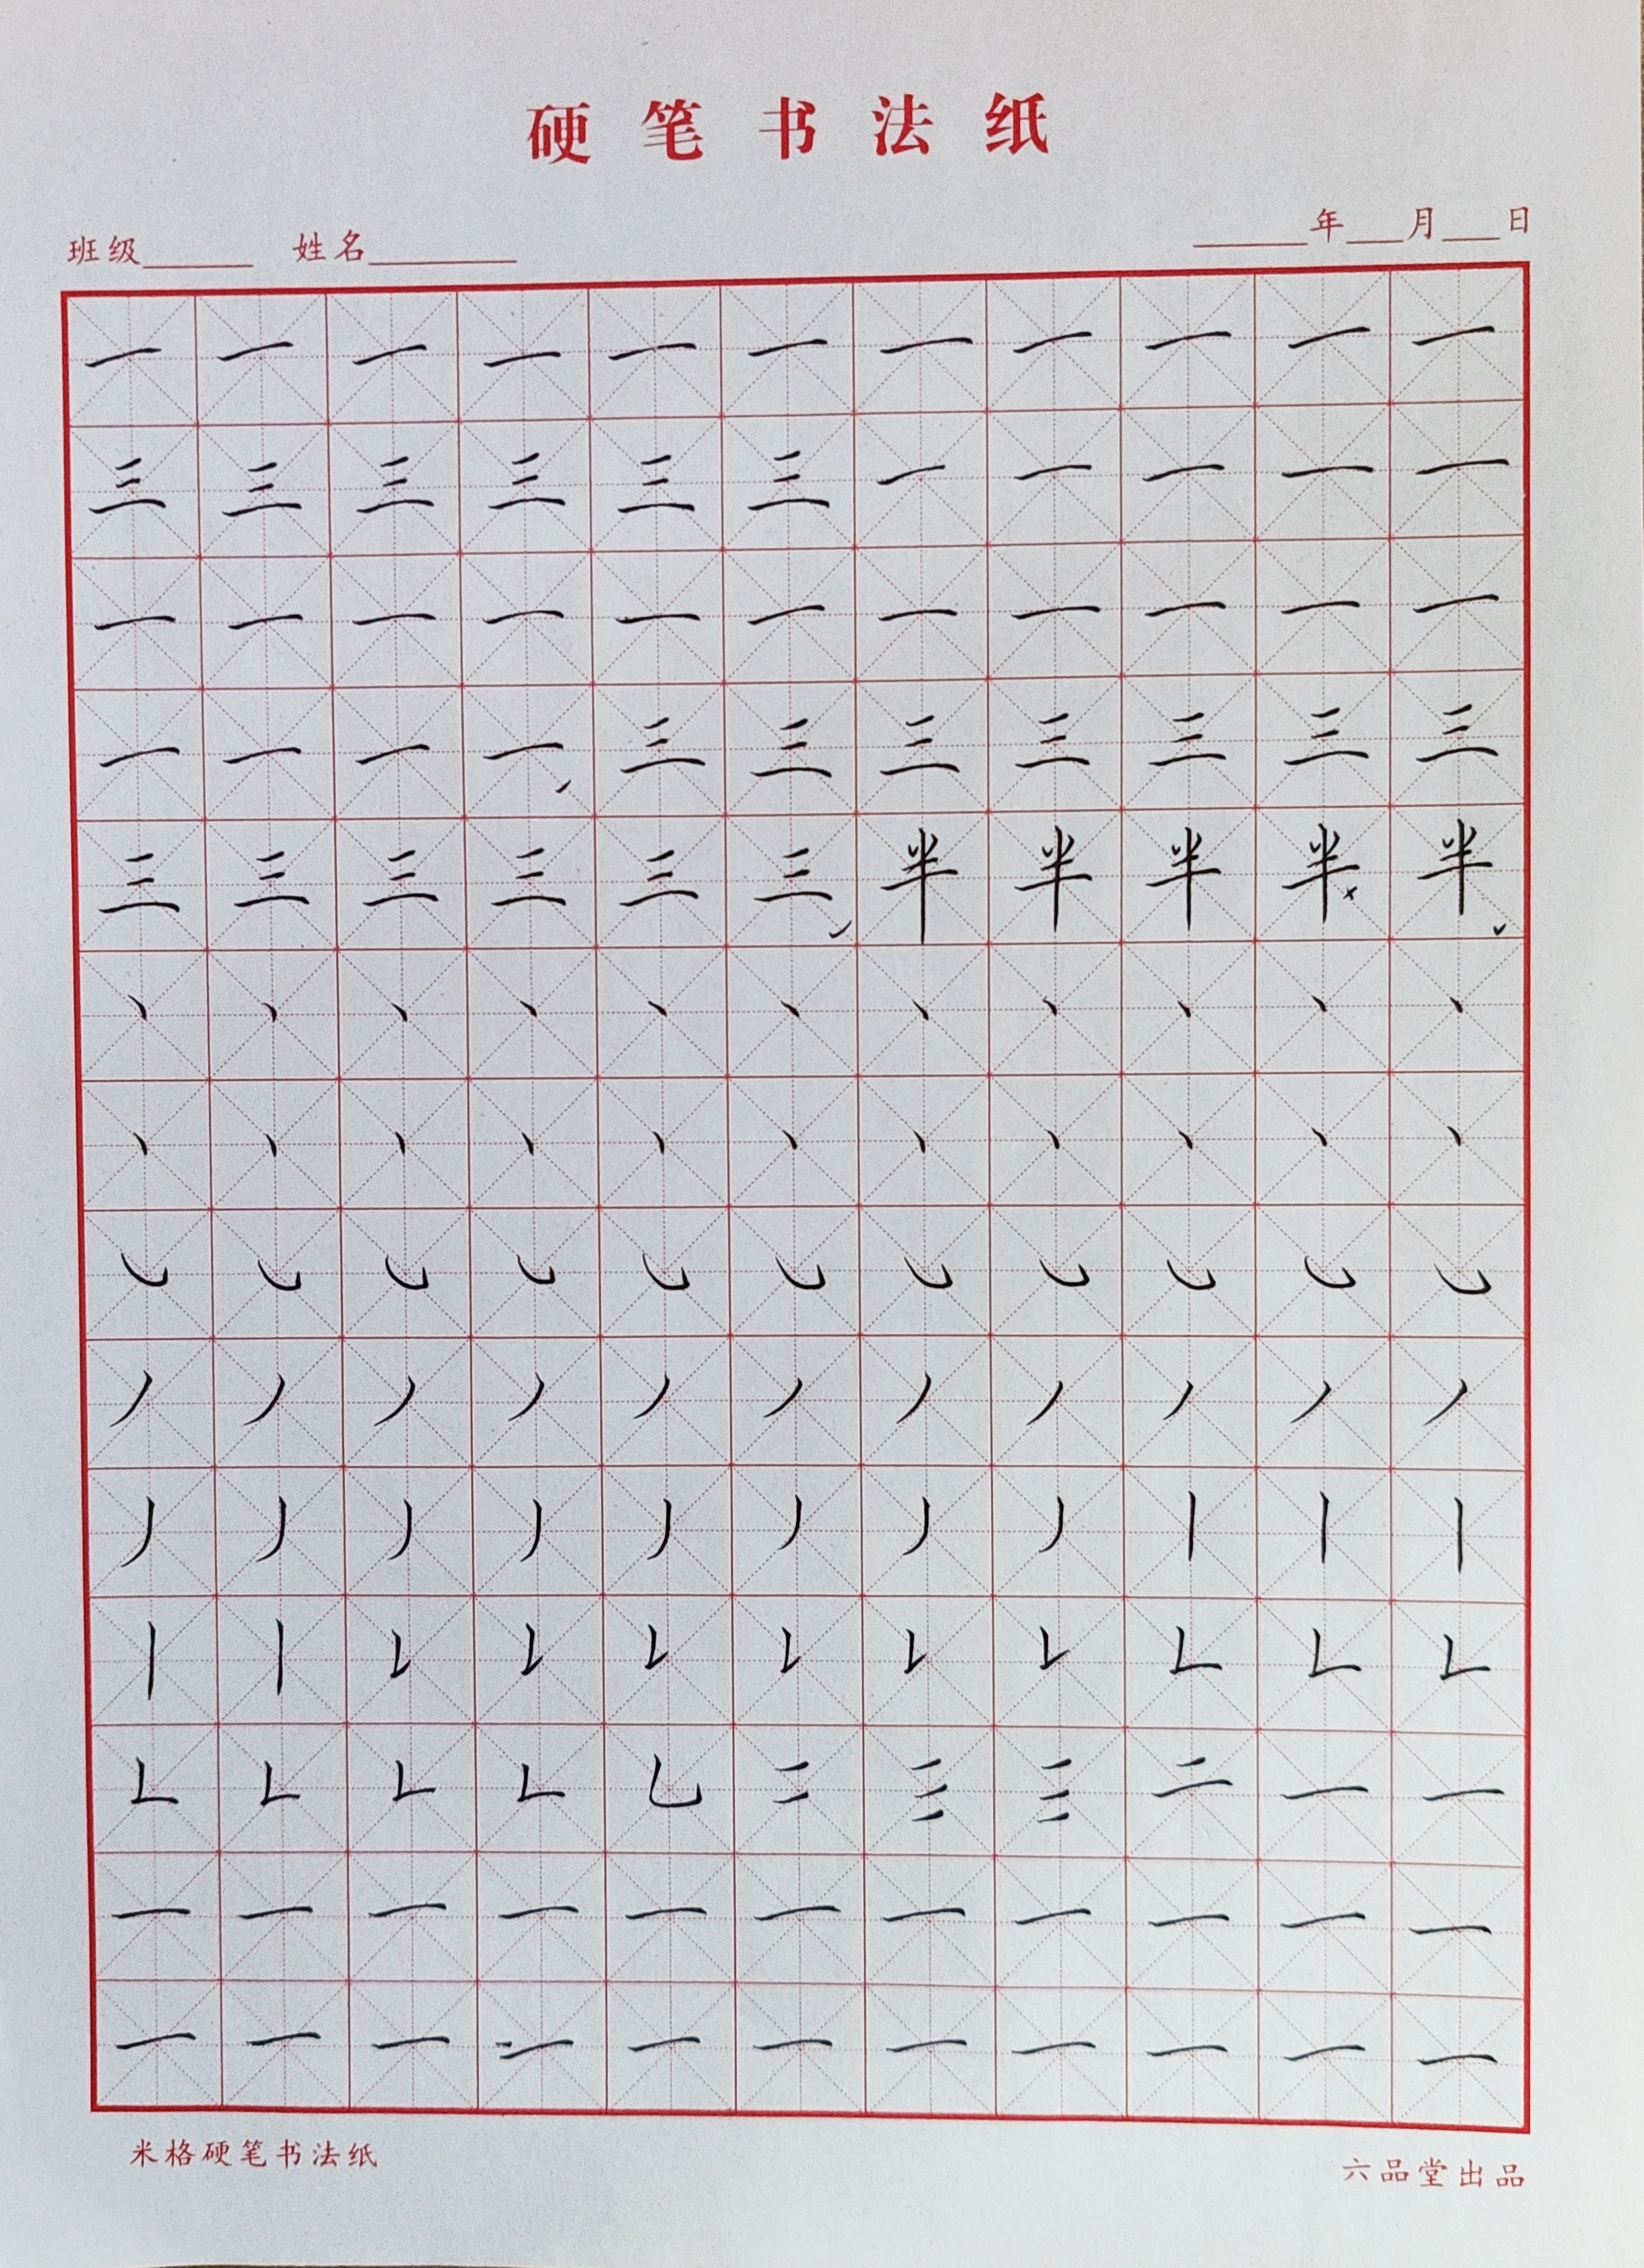 硬笔书法纸
班级______ 姓名________ ______年___月___日
一 一 一 一 一 一 一 一 一 一 一
三 三 三 三 三 三 一 一 一 一 一
一 一 一 一 一 一 一 一 一 一 一
一 一 一 一 三 三 三 三 三 三 三
三 三 三 三 三 三 半 半 半 半 半
丶 丶 丶 丶 丶 丶 丶 丶 丶 丶 丶
丶 丶 丶 丶 丶 丶 丶 丶 丶 丶 丶
丿 丿 丿 丿 丿 丿 丿 丿 丿 丿 丿
丿 丿 丿 丿 丿 丿 丿 丿 丨 丨 丨
丨 丨 𠄌 𠄌 𠄌 𠄌 𠄌 𠄌 𠃊 𠃊 𠃊
𠃊 𠃊 𠃊 𠃊 乚 二 三 三 二 一 一
一 一 一 一 一 一 一 一 一 一 一
一 一 一 一 一 一 一 一 一 一 一
米格硬笔书法纸 六品堂出品